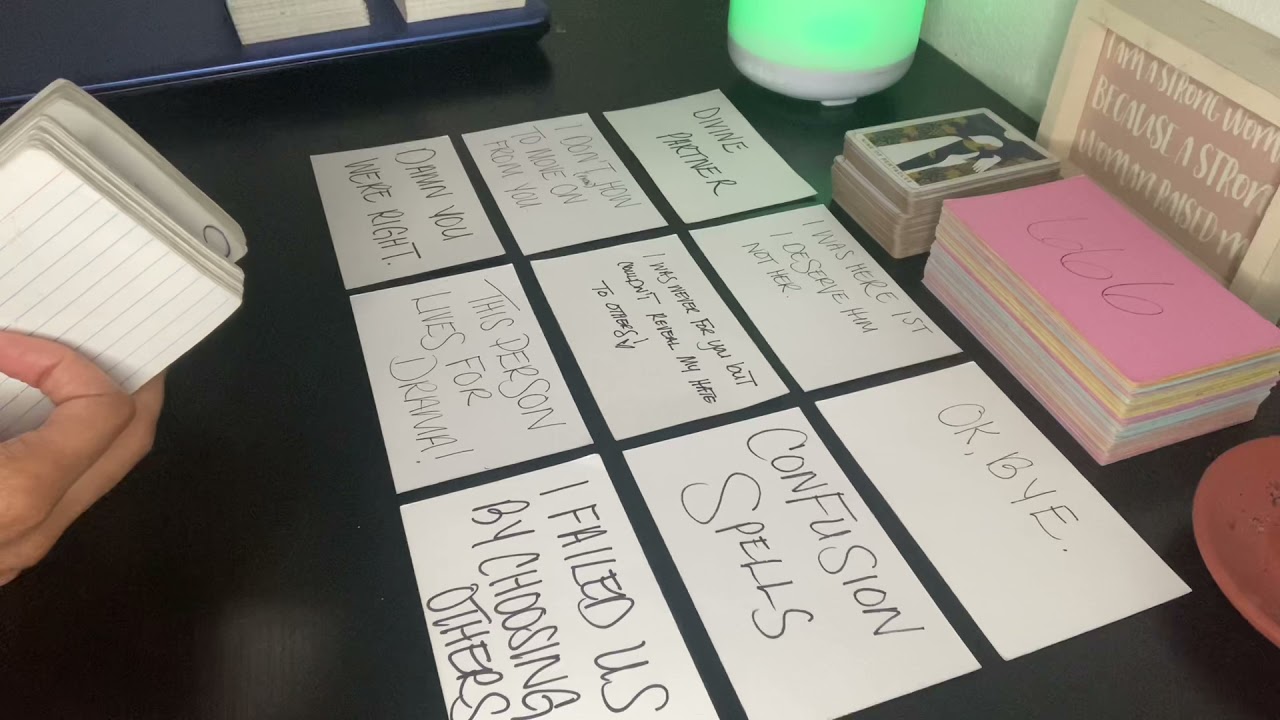 DAMN YOU
WERE RIGHT.
I DON'T HOW
(know)
TO MOVE ON
FROM YOU.
DIVINE
PARTNER
THIS PERSON
LIVES FOR
DRAMA!
I WAS NEVER FOR YOU BUT
COULDN'T REVEAL MY HATE
TO OTHERS!
I WAS HERE 1ST
I DESERVE HIM
NOT HER.
I FAILED US
BY CHOOSING
OTHERS
CONFUSION
SPELLS
OK, BYE.
666
I AM A STRONG WOM
BECAUSE A STRON
WOMAN RAISED M